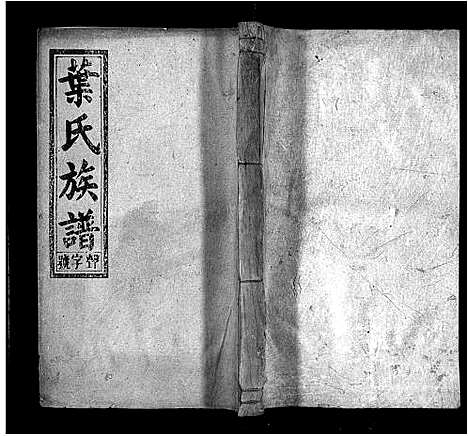 葉氏族譜
字號